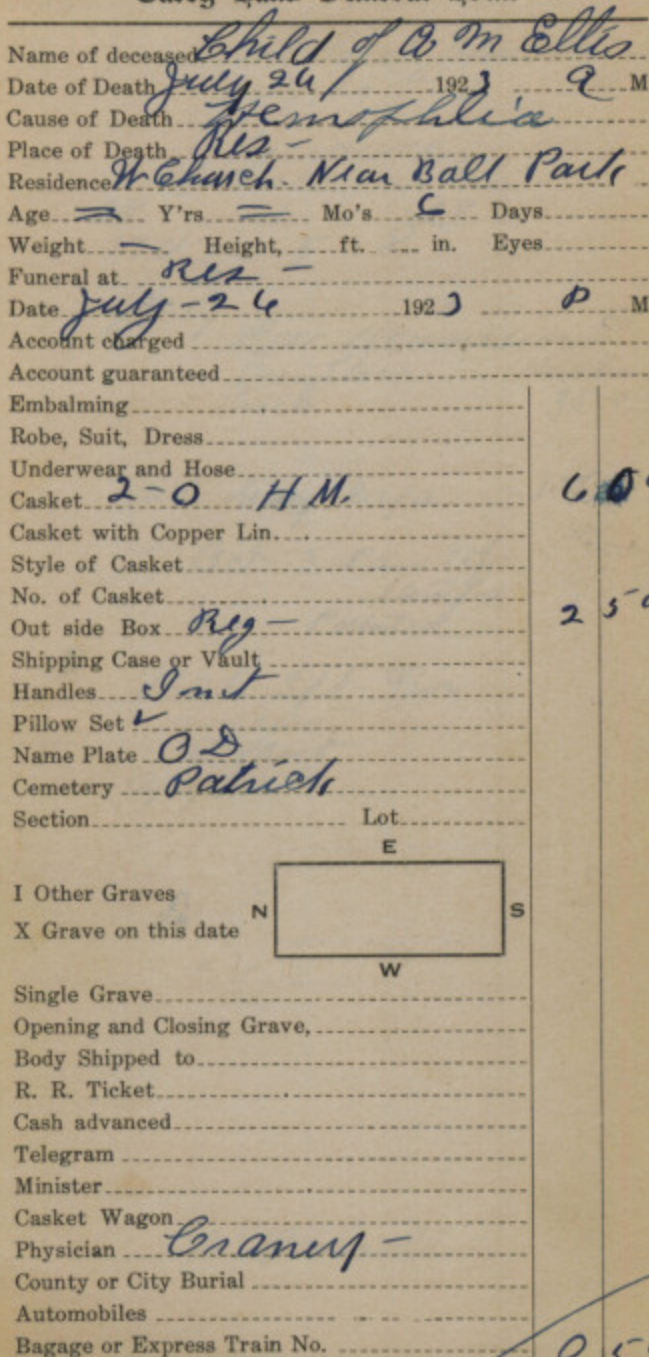 Name of deceased Child of A M Ellis
Date of Death July 26 1923 a M
Cause of Death Hemophlia
Place of Death Res -
Residence W Church. Near Ball Park
Age = Y'rs = Mo's 6 Days
Weight — Height, ft. in. Eyes
Funeral at Res -
Date July - 26 1923 P M
Account charged
Account guaranteed
Embalming
Robe, Suit, Dress
Underwear and Hose
Casket 2-0 H M. 6 00
Casket with Copper Lin.
Style of Casket
No. of Casket
Out side Box Reg - 2 50
Shipping Case or Vault
Handles Int
Pillow Set ✓
Name Plate O D
Cemetery Patrick
Section Lot
E
I Other Graves
N S
X Grave on this date
W
Single Grave
Opening and Closing Grave,
Body Shipped to
R. R. Ticket
Cash advanced
Telegram
Minister
Casket Wagon
Physician Cranery -
County or City Burial
Automobiles
Bagage or Express Train No. 8 50